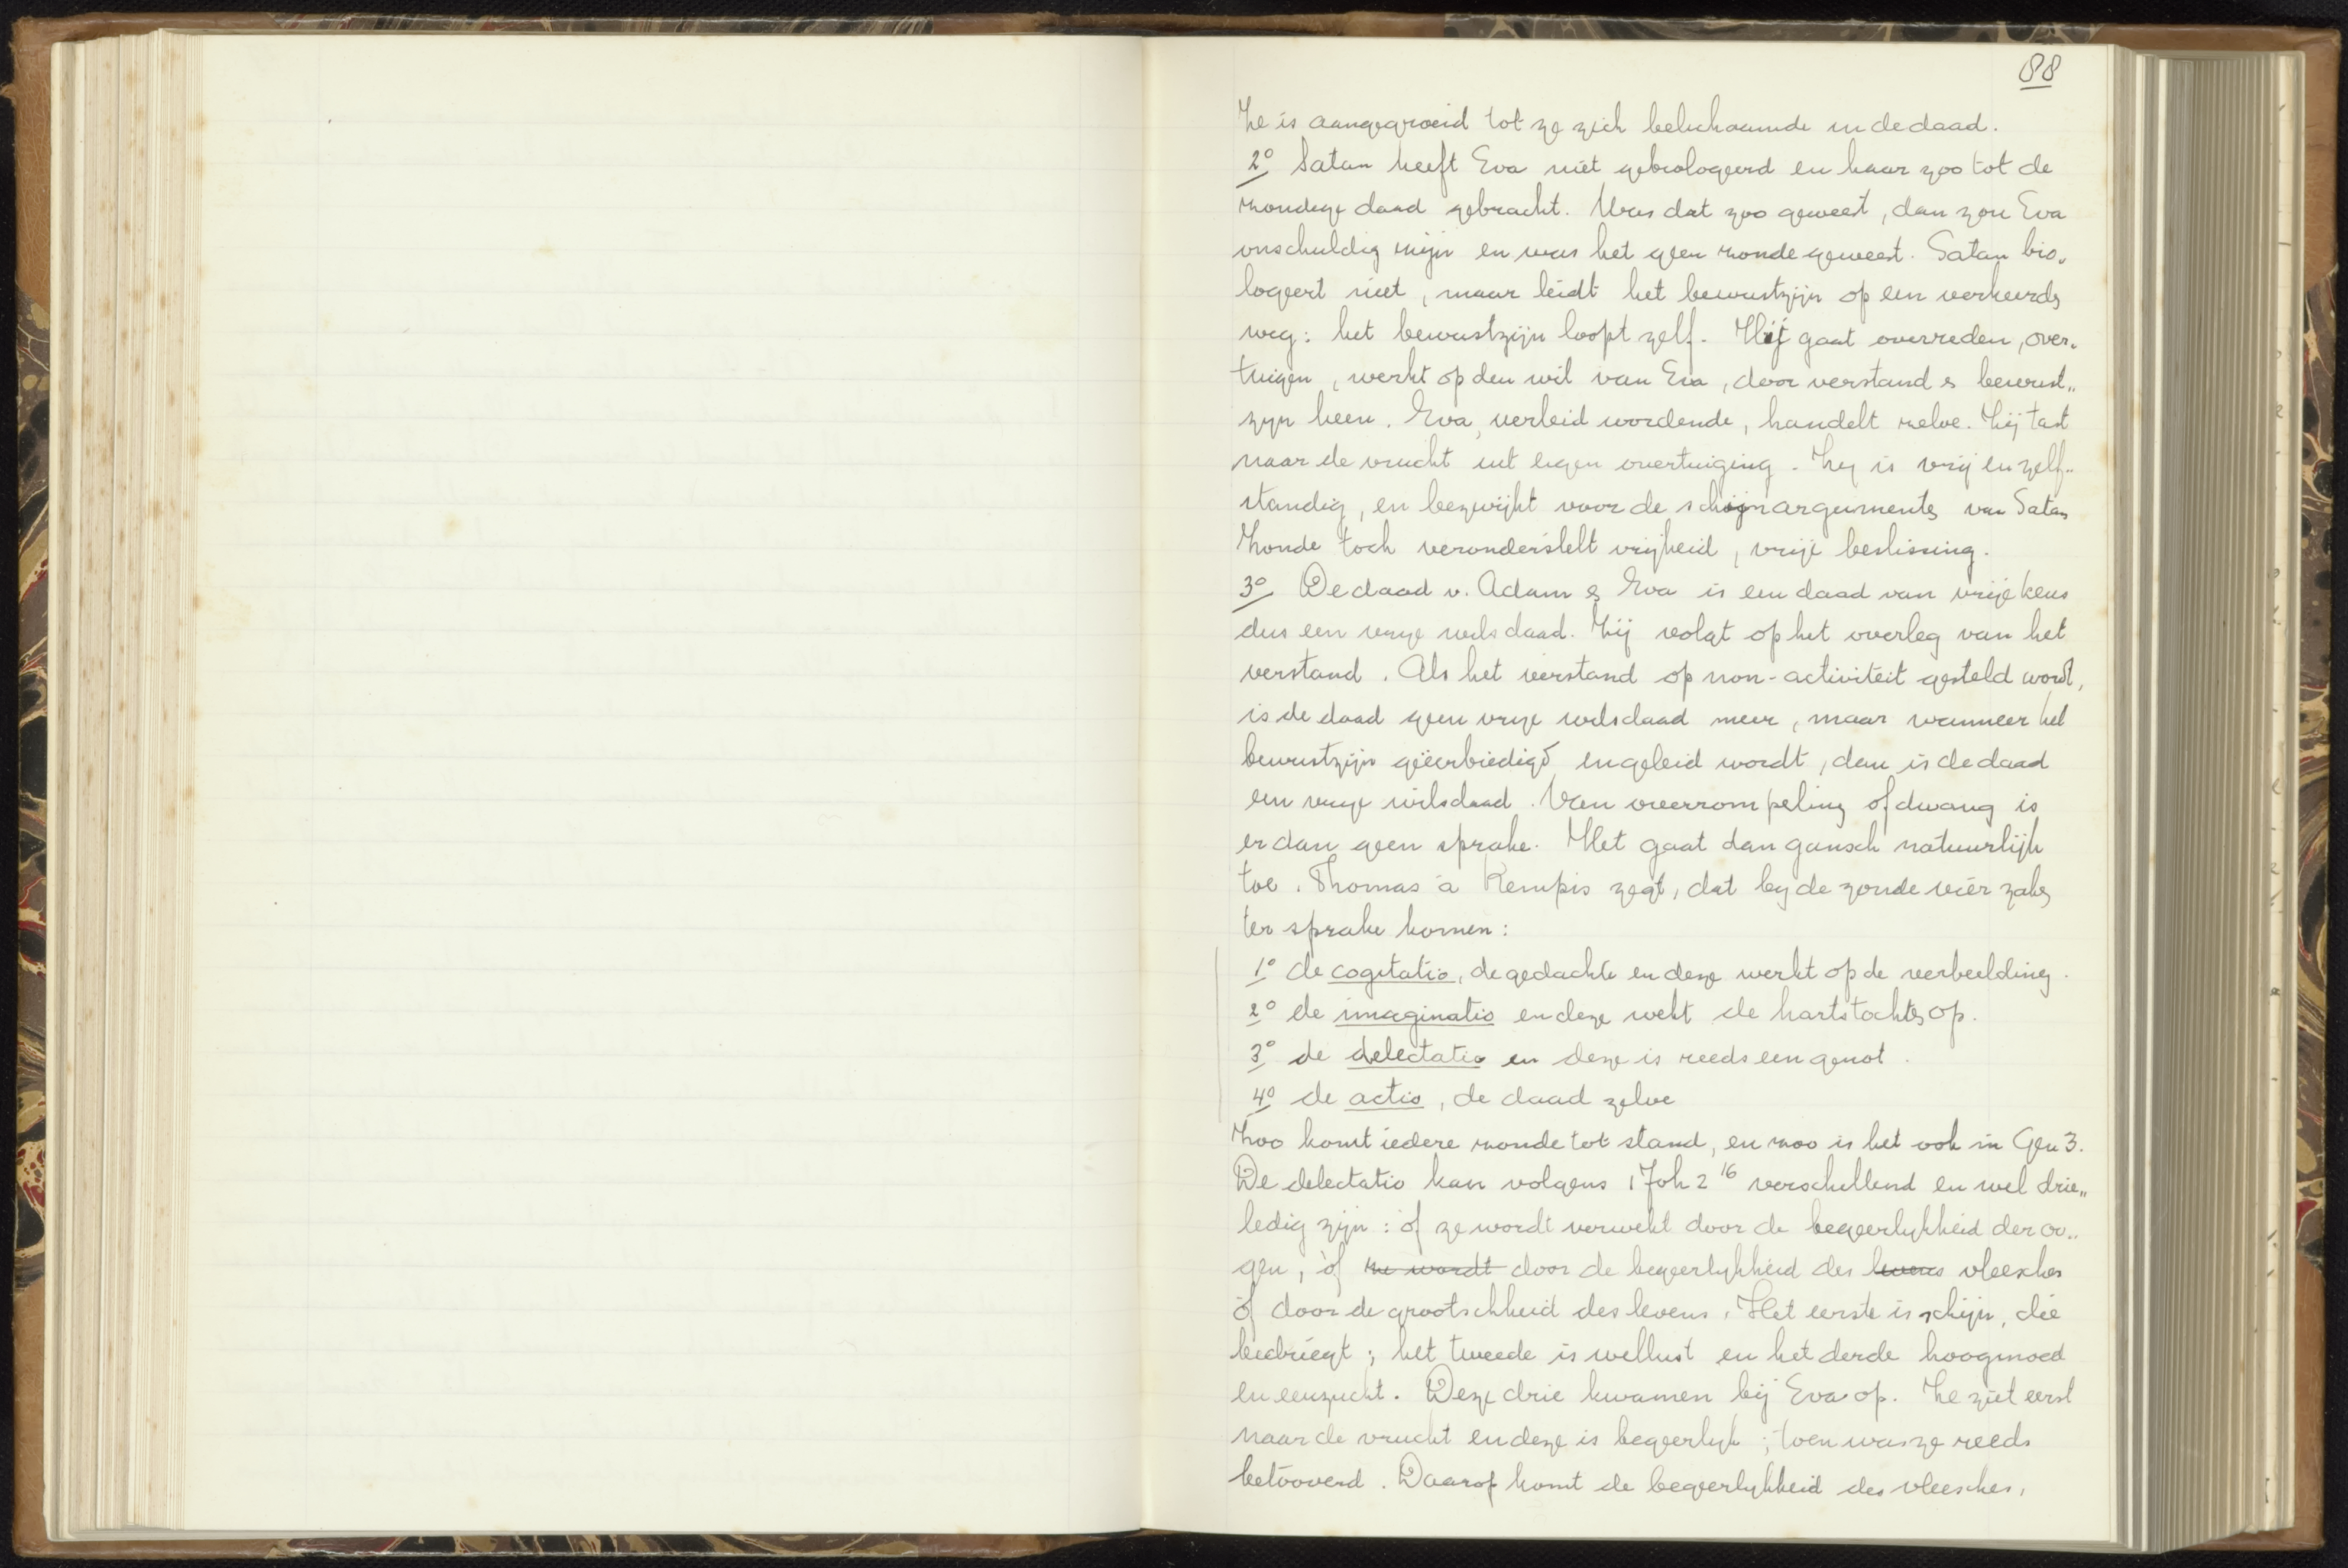 88
Ze is aangegroeid tot ze zich belichaamde in de daad.
2° Satan heeft Eva niet gebiologeerd en haar zoo tot de
zondige daad gebracht. Was dat zoo geweest, dan zou Eva
onschuldig zijn en was het geen zonde geweest. Satan bio„
logeert niet, maar leidt het bewustzijn op een verkeerde
weg: het bewustzijn loopt zelf. Hij gaat overreden, over„
tuigen, werkt op den wil van Eva, door verstand & bewust„
zijn heen. Eva, verleid wordende, handelt zelve. Zij tast
naar de vrucht uit eigen overtuiging. Zij is vrij en zelf„
standig, en bezwijkt voor de schijnargumenten van Satan
Zonde toch veronderstelt vrijheid, vrije beslissing.
3° De daad v. Adam & Eva is een daad van vrije keus
dus een vrije wilsdaad. Zij volgt op het overleg van het
verstand. Als het verstand op non-activiteit gesteld wordt,
is de daad geen vrije wilsdaad meer, maar wanneer het
bewustzijn geëerbiedigd en geleid wordt, dan is de daad
een vrije wilsdaad. Van overrompeling of dwang is
er dan geen sprake. Het gaat dan gansch natuurlijk
toe. Thomas à Kempis zegt, dat bij de zonde vier zaken
ter sprake komen:
1° de cogitatio, de gedachte en deze werkt op de verbeelding.
2° de imaginatio en deze wekt de hartstochten op.
3° de delectatio en deze is reeds een genot.
4° de actio, de daad zelve
Zoo komt iedere zonde tot stand, en zoo is het ook in Gen 3.
De delectatio kan volgens 1 Joh 2 16 verschillend en wel drie„
ledig zijn: òf ze wordt verwekt door de begeerlijkheid der oo„
gen, òf ze wordt door de begeerlijkheid des levens vleesches
òf door de grootschheid des levens. Het eerste is schijn, die
bedriegt; het tweede is wellust en het derde hoogmoed
en eerzucht. Deze drie kwamen bij Eva op. Ze ziet eerst
naar de vrucht en deze is begeerlijk; toen was ze reeds
betooverd. Daarop komt de begeerlijkheid des vleesches,